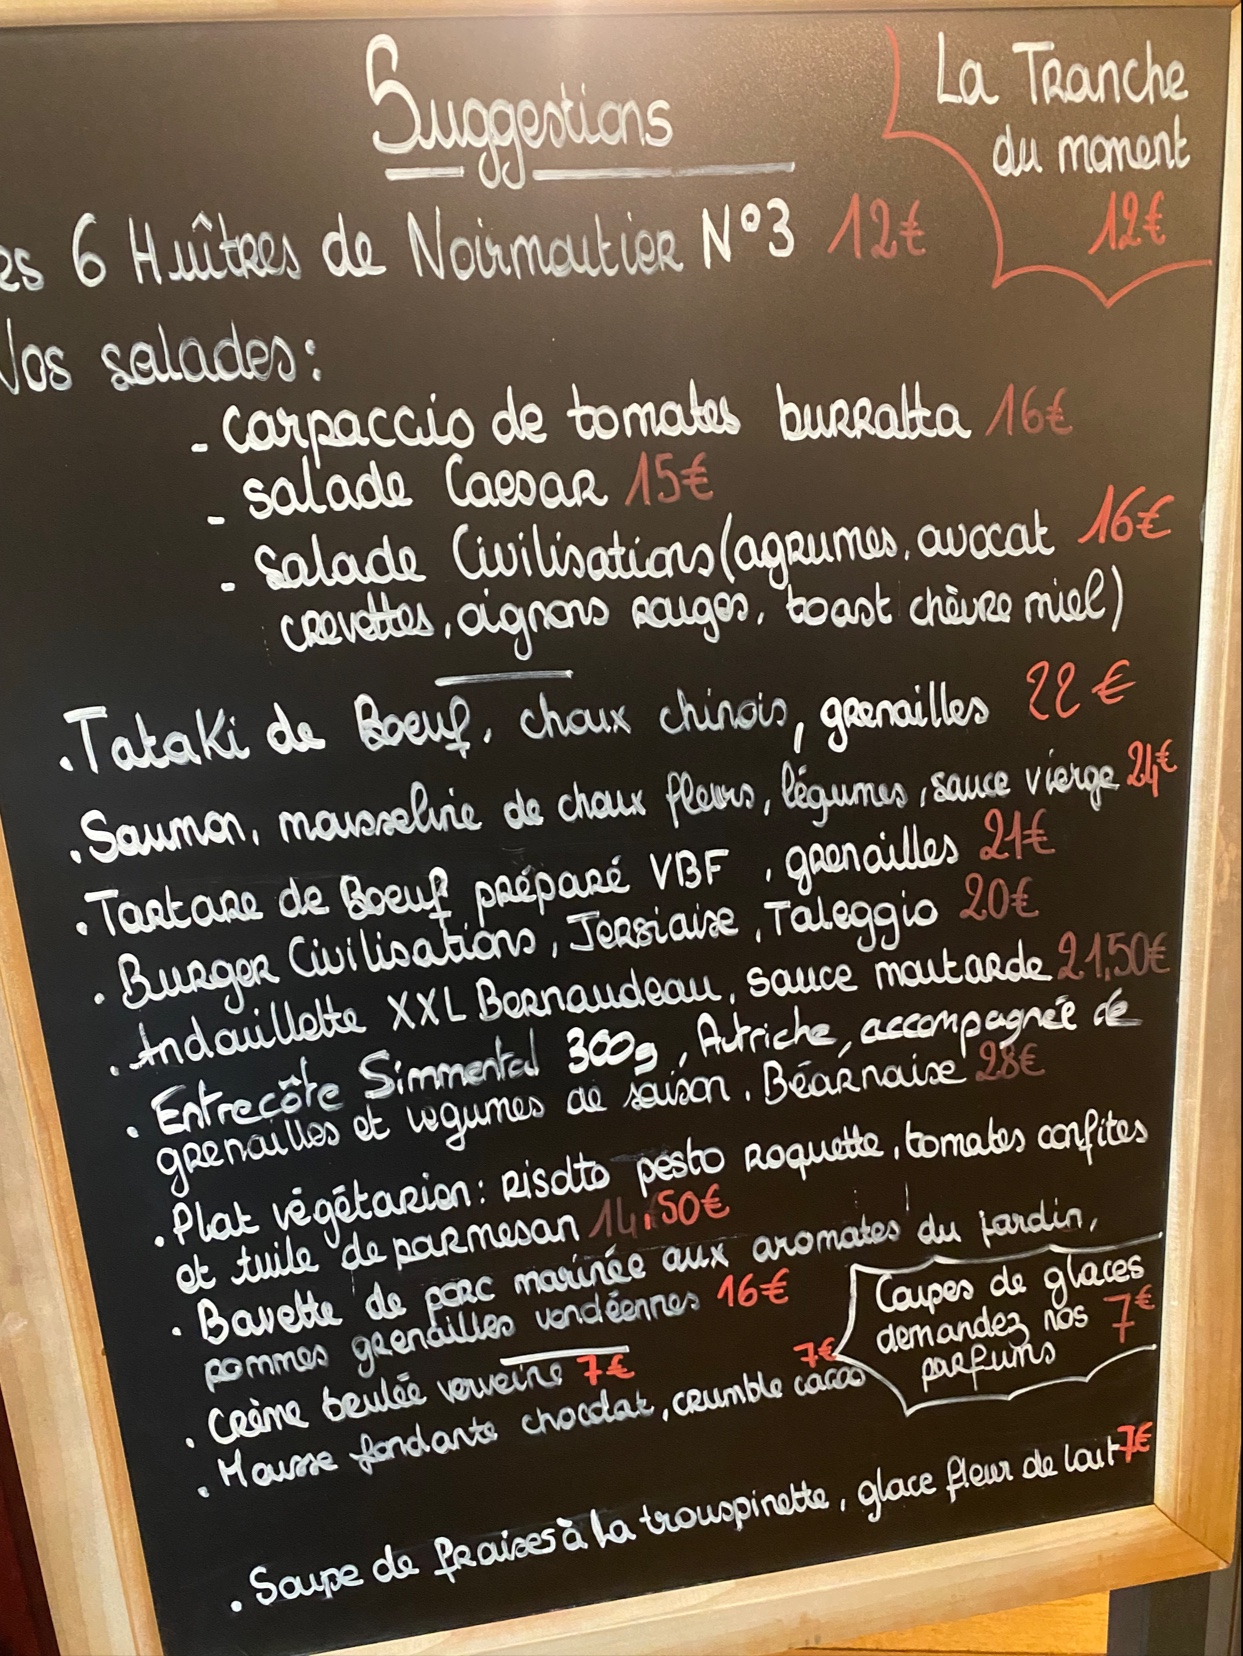 Suggestions
La Tranche
du moment
12€
es 6 Huîtres de Noirmoutier N°3 12€
Nos salades:
- carpaccio de tomates burratta 16€
- salade Caesar 15€
- salade Civilisations (agrumes, avocat 16€
crevettes, oignons rouges, toast chèvre miel)
. Tataki de Boeuf, choux chinois, grenailles 22€
. Saumon, mousseline de choux fleurs, légumes, sauce vierge 24€
. Tartare de Boeuf préparé VBF, grenailles 21€
. Burger Civilisations, Jersiaise, Taleggio 20€
. Andouillette XXL Bernaudeau, sauce moutarde 21,50€
. Entrecôte Simmental 300g, Autriche, accompagnée de
grenailles et légumes de saison. Béarnaise 28€
. Plat végétarien: risotto pesto roquette, tomates confites
et tuile de parmesan 14.50€
. Bavette de porc marinée aux aromates du jardin,
pommes grenailles vendéennes 16€
Coupes de glaces
demandez nos 7€
parfums
. Crème brulée verveine 7€
. Mousse fondante chocolat, crumble cacao 7€
. Soupe de fraises à la trouspinette, glace fleur de lait 7€